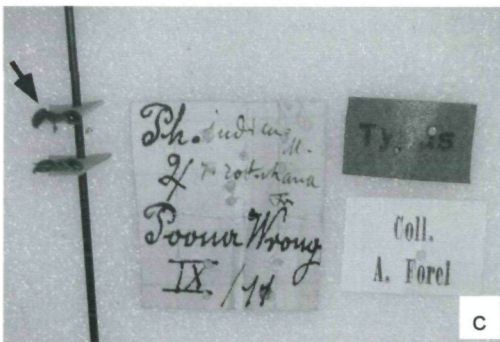 Ph. indica M.
v. rotschana
Fr
Poona
IX.
Typus
Coll.
A. Forel
C